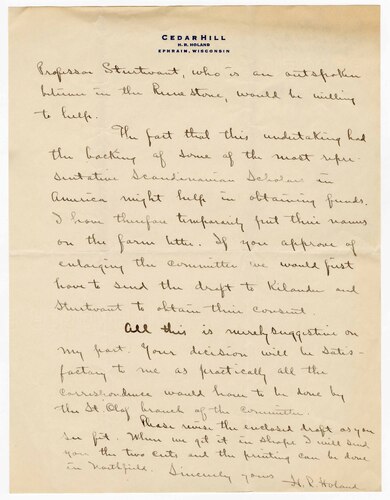 CEDAR HILL
H. R. HOLAND
EPHRAIM, WISCONSIN
Professor Sturtvant, who is an outspoken
believer in the Rune Stone, would be willing
to help.
The fact that this undertaking had
the backing of some of the most repre-
sentative Scandinavian Scholars in
America might help in obtaining funds.
I have therefore temporarily put their names
on the form letter. If you approve of
enlarging the committee we would first
have to send the draft to Kilander and
Sturtvant to obtain their consent
All this is merely suggestive on
my part. Your decision will be satis-
factory to me as practically all the
correspondence would have to be done by
the St Olaf branch of the committee.
Please revise the enclosed draft as you
see fit. When we get it in shape I will send
you the two cuts and the printing can be done
in Northfield. Sincerely yours H. R. Holand